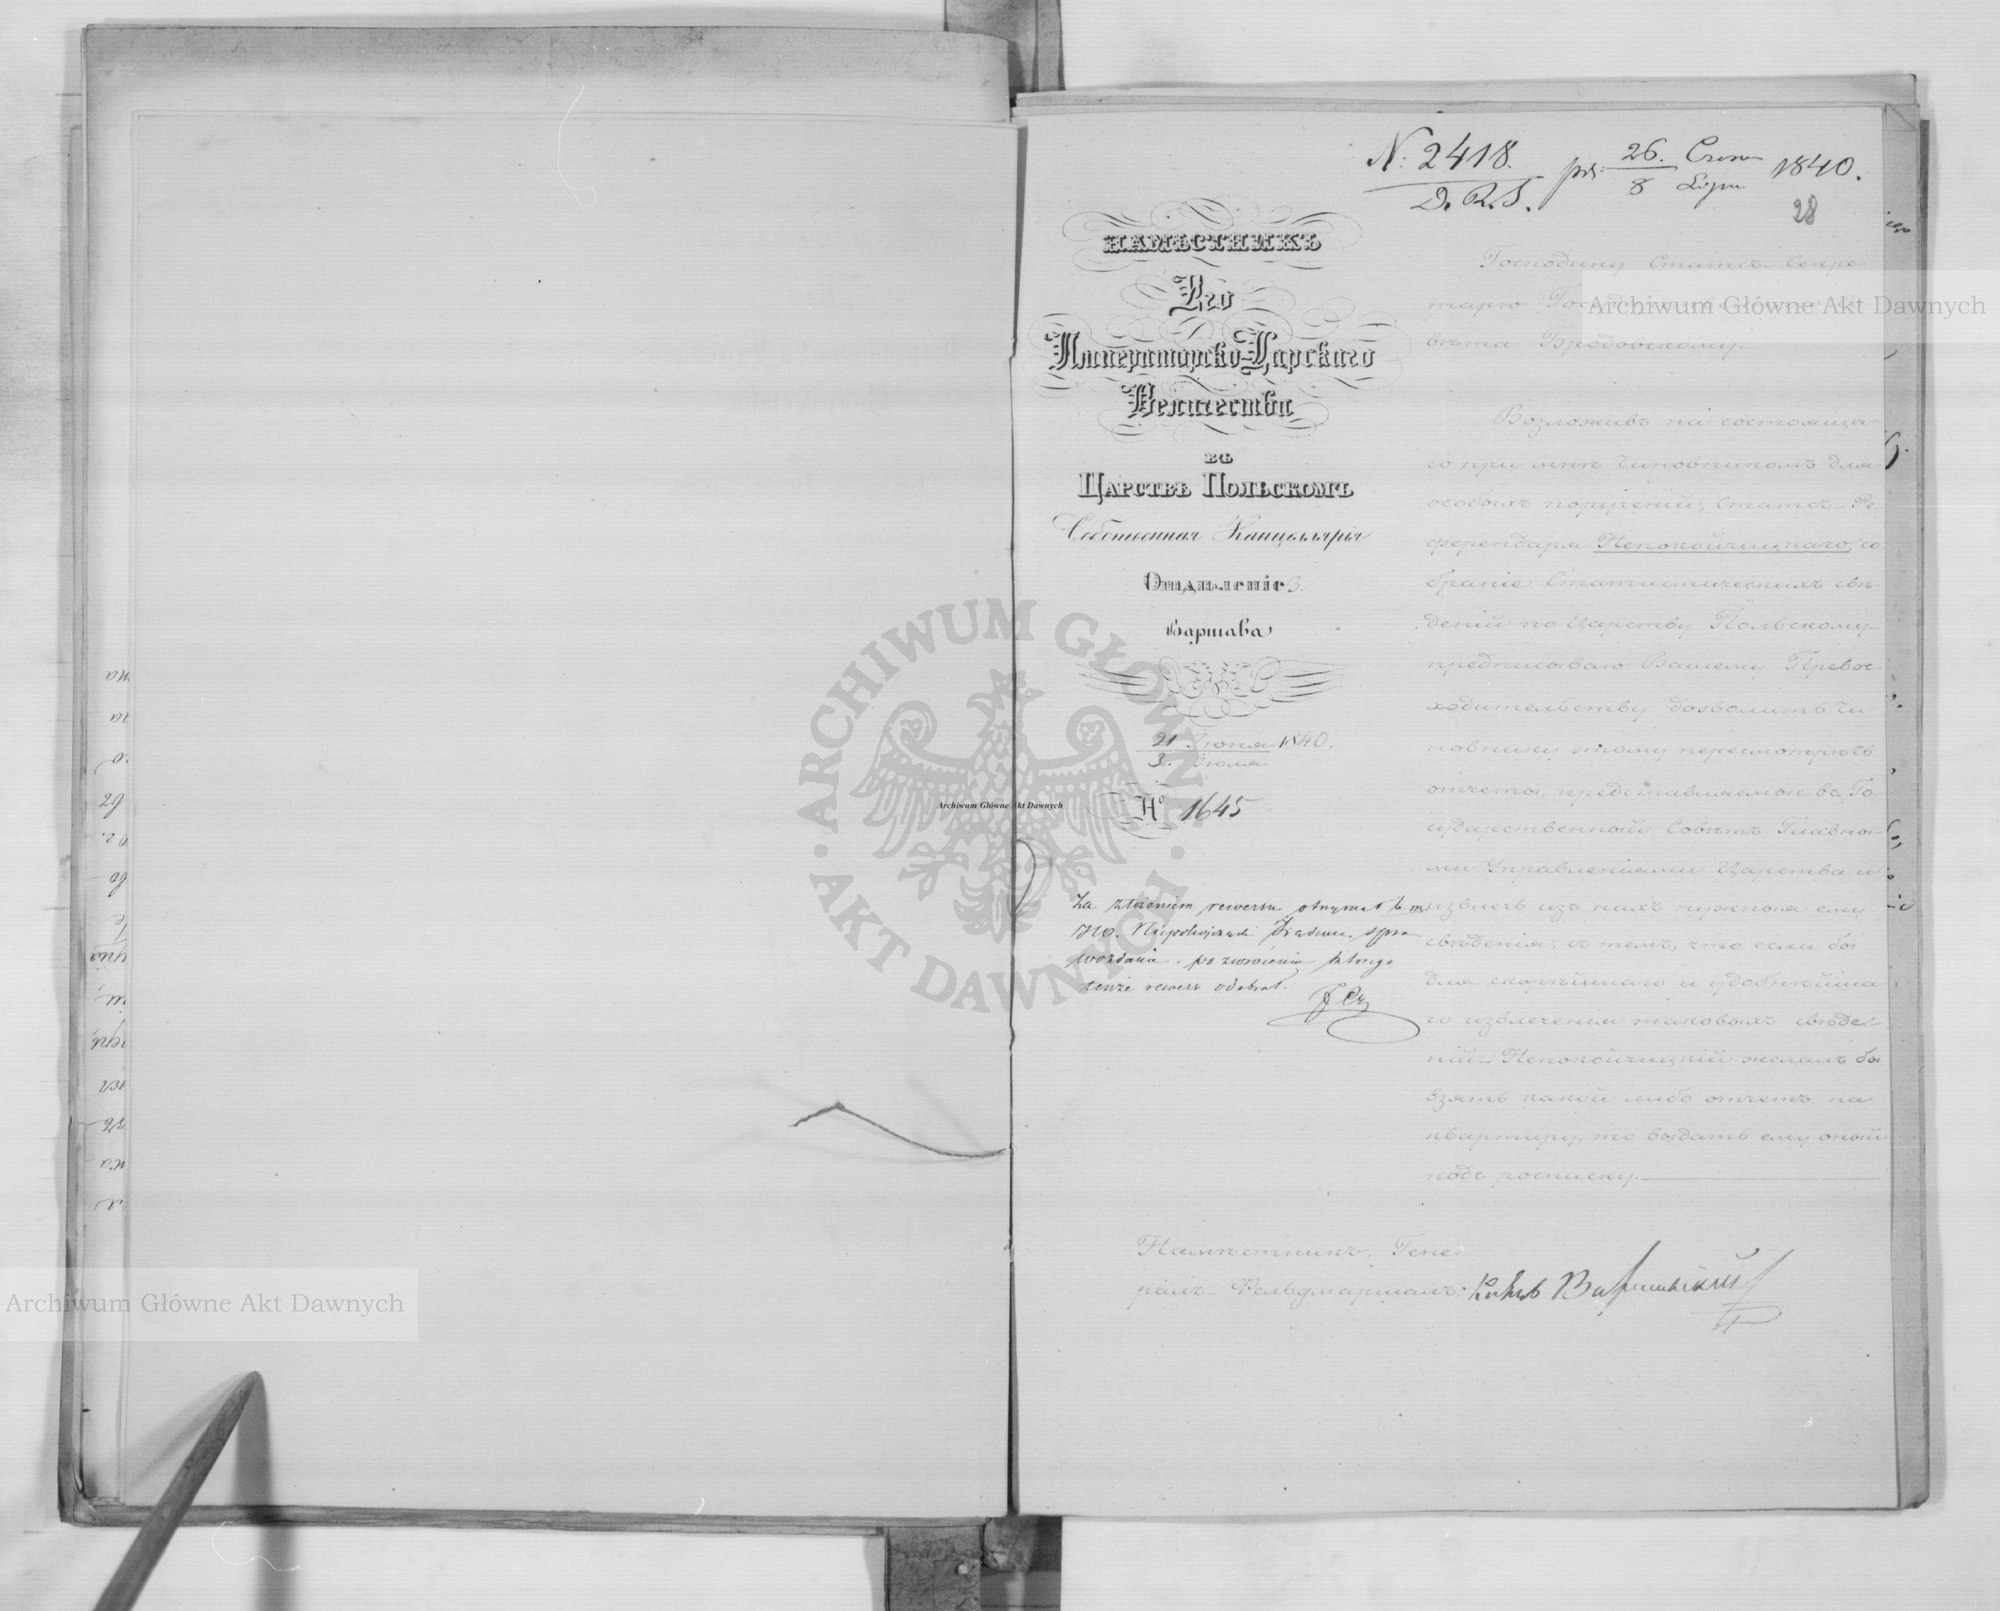 N: 2418.
D. R. S.
pr: 26. Czerw 1840.
8 Lipca
28
НАМѢСТНИКЪ
Его
Императорско-Царскаго
Величества
въ
Царствѣ Польскомъ
Собственная Канцелярія
Отдѣленіе 3.
Варшава
21 Іюня 1840.
3. Іюля
№ 1645
Za złożeniem rewersu otrzymał
JW. Niepokojczycki
po zwróceniu
tenże rewers odebrał.
Господину Статсъ-Секре-
тарю
вѣта Бродовскому.
Возложивъ на состояща
го при мнѣ чиновникомъ для
особыхъ порученій, Статсъ-Ре
ферендаря Непокойчицкаго, со
браніе Статистическихъ свѣ-
деній по Царству Польскому-
предписываю Вашему Превос-
ходительству дозволить чи
новнику этому пересмотрѣть
отчеты, представляемые въ Го
сударственный Совѣтъ Главны-
ми Управленіями Царства и
извлечь изъ нихъ нужныя ему
свѣденія, съ тѣмъ, что если бы
для скорѣйшаго и удобнѣйша
го извлеченія таковыхъ свѣде-
ній- Непокойчицкій желалъ бы
взять какой либо отчетъ на
квартиру, то выдать ему оный
подъ росписку.
Намѣстникъ, Гене-
ралъ-Фельдмаршалъ: Князь Варшавскій
Archiwum Główne Akt Dawnych
Archiwum Główne Akt Dawnych
Archiwum Główne Akt Dawnych
ARCHIWUM GŁÓWNE · AKT DAWNYCH ·